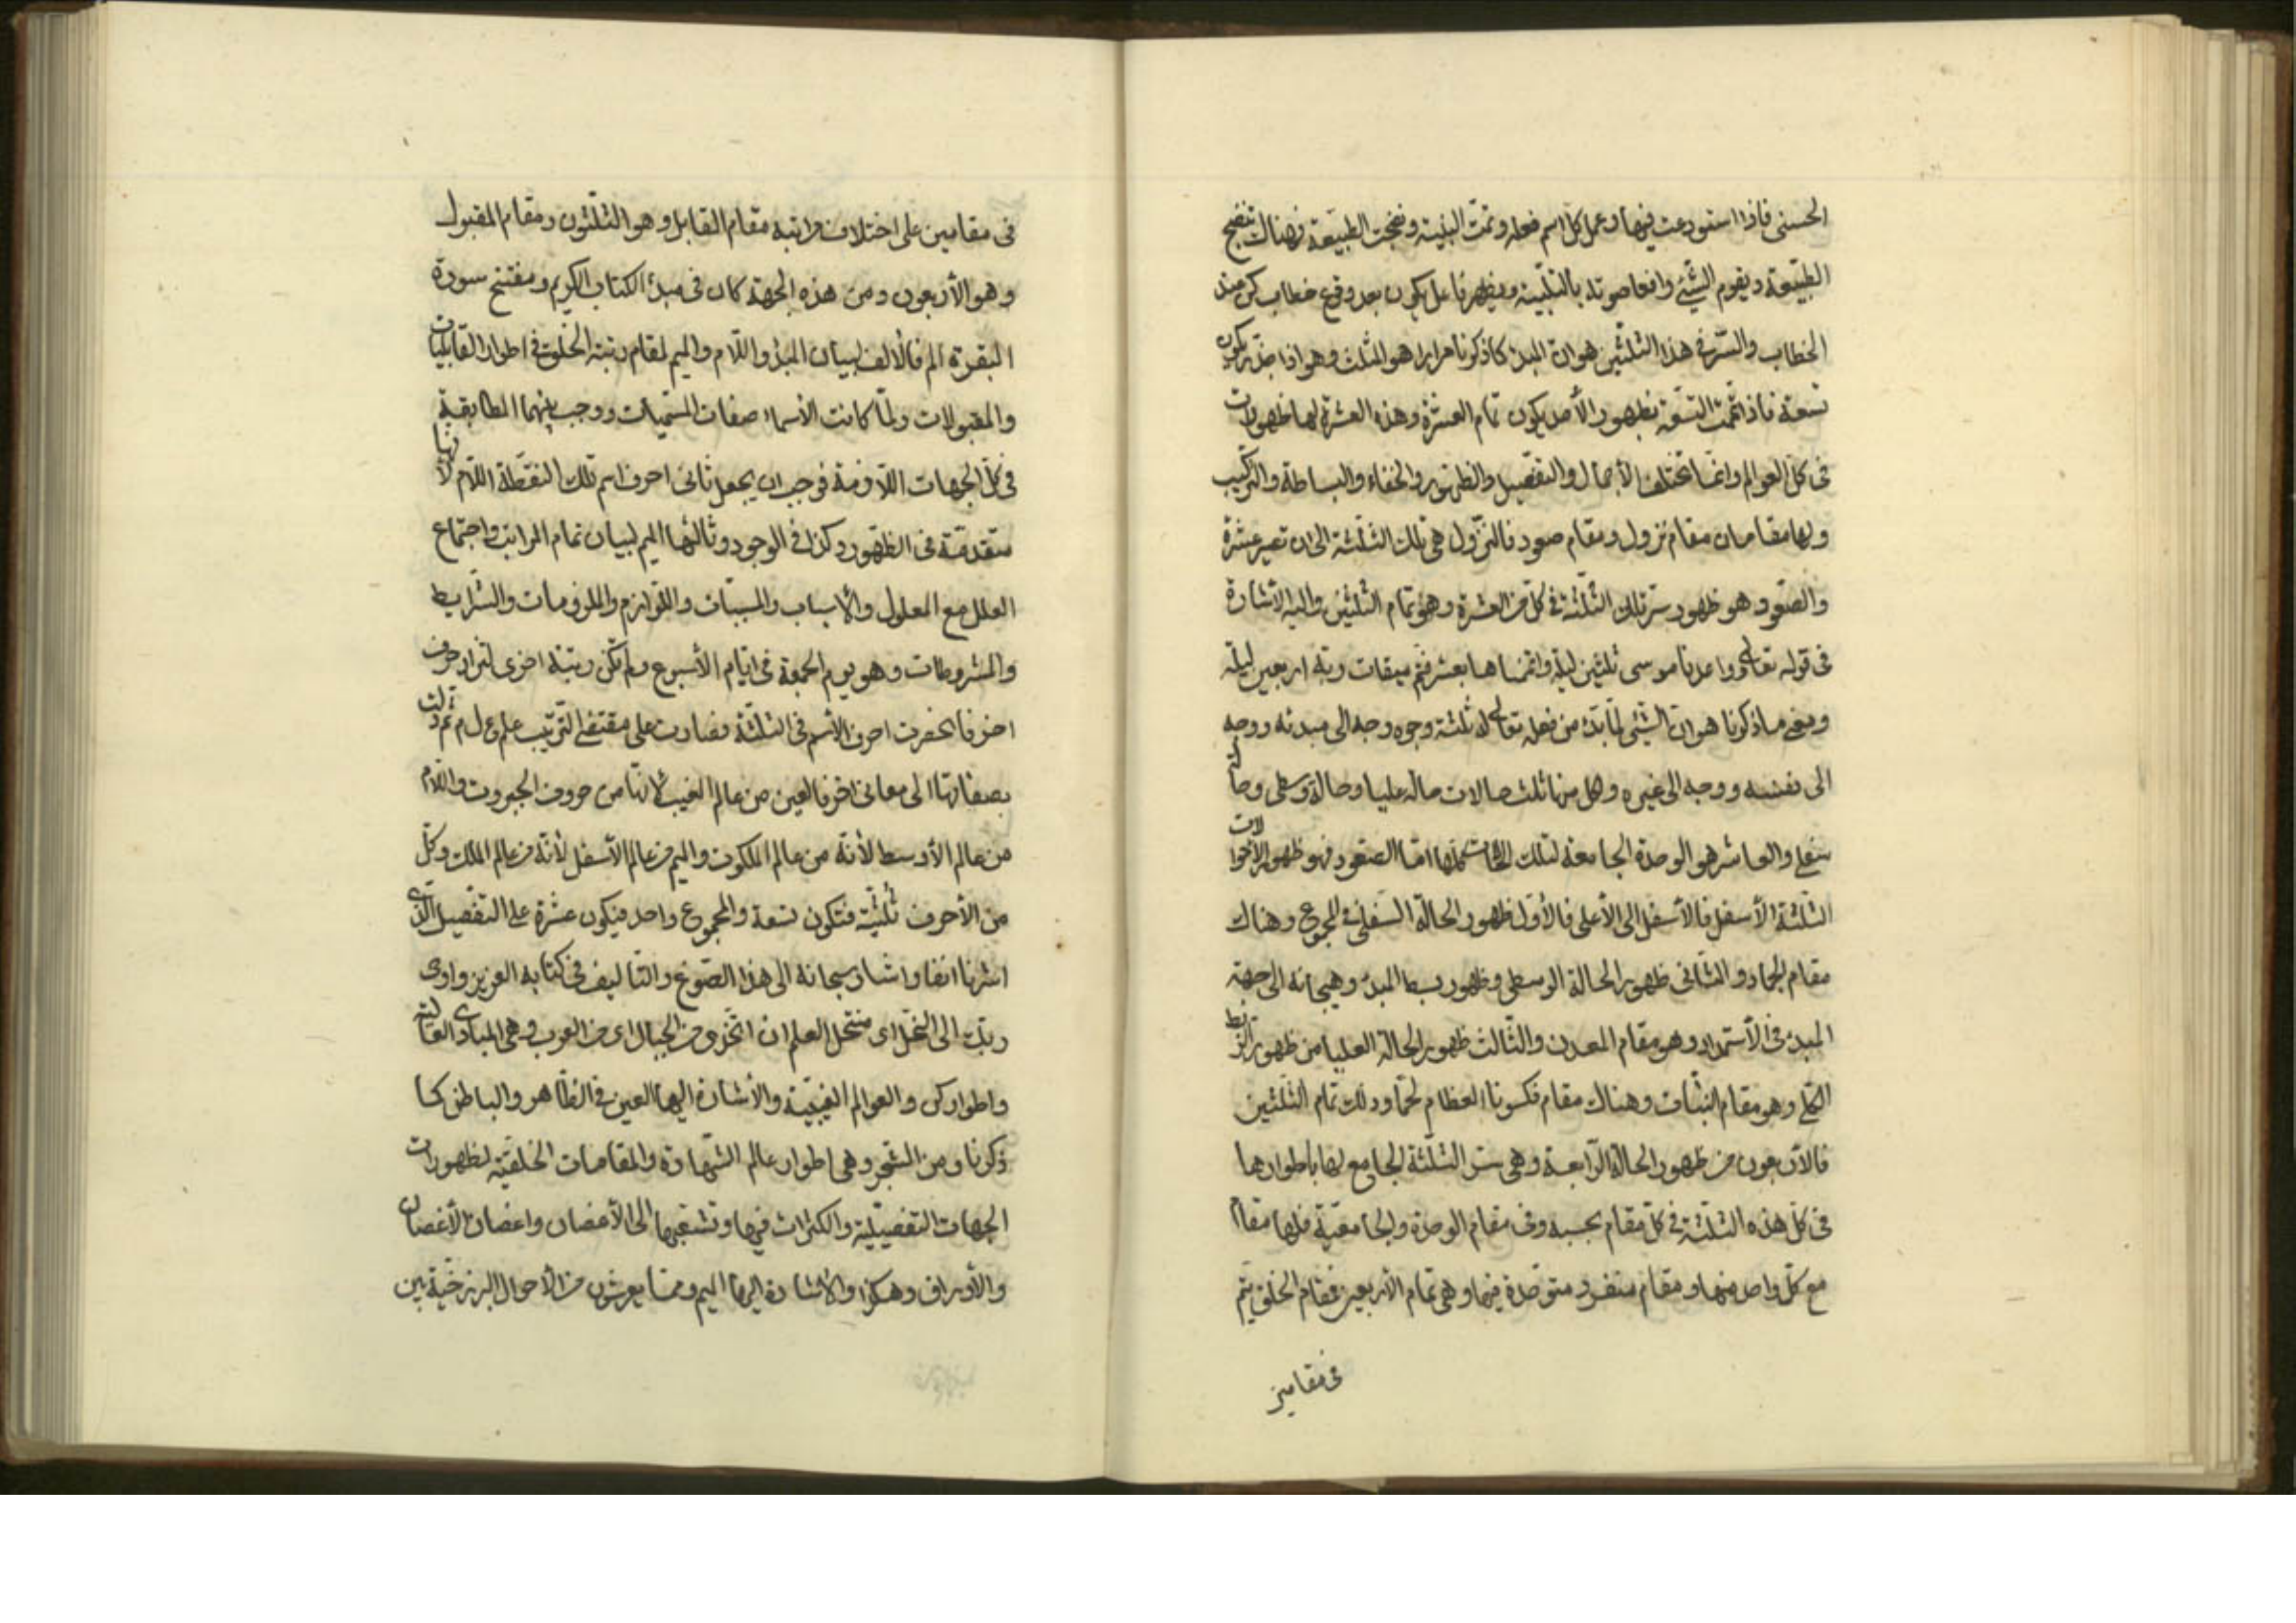 الحسنى فاذا استودعت فيها وعمل كل اسم فعله وتمت البنية ونضجت الطبيعة فهناك تنضج
الطبيعة ويقوم الشيء وافعا صوته بالتلبية ويظهر فاعل يكون بعد وقوع خطاب كن عند
الخطاب والسر في هذا الثلثين هو ان المبدء كما ذكرنا مرارا هو المثلث وهو اذا جذّر يكون
تسعة فاذا تممت التسعة بظهور الأصل يكون تمام العشرة وهذه العشرة لها ظهورات
فى كل العوالم وانما تختلف بالأجمال والتفصيل والظهور والخفاء والبساطة والتركيب
ولها مقامان مقام نزول ومقام صعود فالنزول هي تلك الثلثة الى ان تصير عشرة
والصعود هو ظهور سر تلك الثلثة في كل من العشرة وهو تمام الثلثين واليه الأشارة
فى قوله تعالى وواعدنا موسى ثلثين ليلة واتممناها بعشر فتم ميقات ربه اربعين ليلة
ومعنى ما ذكرنا هو ان الشيء لما بدء من فعله تعالى له ثلثة وجوه وجه الى مبدئه ووجه
الى نفسه ووجه الى غيره ولكل منها ثلث حالات حالة عليا وحالة وسطى وحالة
سفلى والعاشر هو الوحدة الجامعة لتلك الحالات كلها اما الصعود فهو ظهور الأحوالات
الثلثة الأسفل فالأسفل الى الأعلى فالأول ظهور الحالة السفلى في المجموع وهناك
مقام الجماد والثانى ظهور الحالة الوسطى وظهور بسط المبدء وهيجانه الى جهة
المبدء فى الأستمداد وهو مقام المعدن والثالث ظهور الحالة العليا من ظهور الربط
الكلى وهو مقام النبات وهناك مقام فكسونا العظام لحما وذلك تمام الثلثين
فالأربعون من ظهور الحالة الرابعة وهى سر الثلثة الجامع لها باطوارها
فى كل هذه الثلثة في كل مقام بحسبه وفى مقام الوحدة والجامعية فلها مقام
مع كل واحد منها ومقام منفرد متوحدة فيها وهى تمام الأربعين فمقام الخلق يتم
فى مقامين
فى مقامين على اختلاف مراتبه مقام القابل وهو الثلثون ومقام المقبول
وهو الأربعون ومن هذه الجهة كان فى مبدء الكتاب الكريم ومفتتح سورة
البقرة الم فالألف لبيان المبدء واللام والميم لمقام رتبة الخلق في اطوار القابليات
والمقبولات ولما كانت الأسماء صفات المسميات ووجب بينهما المطابقة
فى كل الجهات اللازمة فوجب ان يجعل ثانى احرف اسم تلك النقطة اللام لانها
متقدمة فى الظهور وكذا في الوجود وثالثها الميم لبيان تمام المراتب واجتماع
العلل مع المعلول والاسباب والمسببات واللوازم والملزومات والشرايط
والمشروطات وهو يوم الجمعة فى ايام الأسبوع ولم تكن رتبة اخرى لتزاد حرف
اخر فانحصرت احرف الأسم فى الثلثة فصارت على مقتضى الترتيب علم ع ل م ثم دلت
بصفاتها الى معانى اخر فالعين من عالم الغيب لانها من حروف الجبروت واللام
من عالم الأوسط لأنه من عالم الملكوت والميم من عالم الأسفل لأنه من عالم الملك وكل
من الأحرف ثلثية فتكون تسعة والمجموع واحد فيكون عشرة على التفصيل الذى
اشرنا انفا واشار سبحانه الى هذا الصوغ والتأليف في كتابه العزيز واوحى
ربك الى النحل اى منتحل العلم ان اتخذى من الجبال اى من العرب وهى المبادى العالية
واطوار كن والعوالم الغيبية والأشارة اليها العين في الظاهر والباطن كما
ذكرنا ومن الشجر وهى اطوار عالم الشهادة والمقامات الخلقية لظهورات
الجهات التفصيلية والكثرات فيها وتشعبها الى الأغصان واغصان الأغصان
والأوراق وهكذا والاشارة اليها الميم ومما يعرشون من الأحوال البرزخية بين